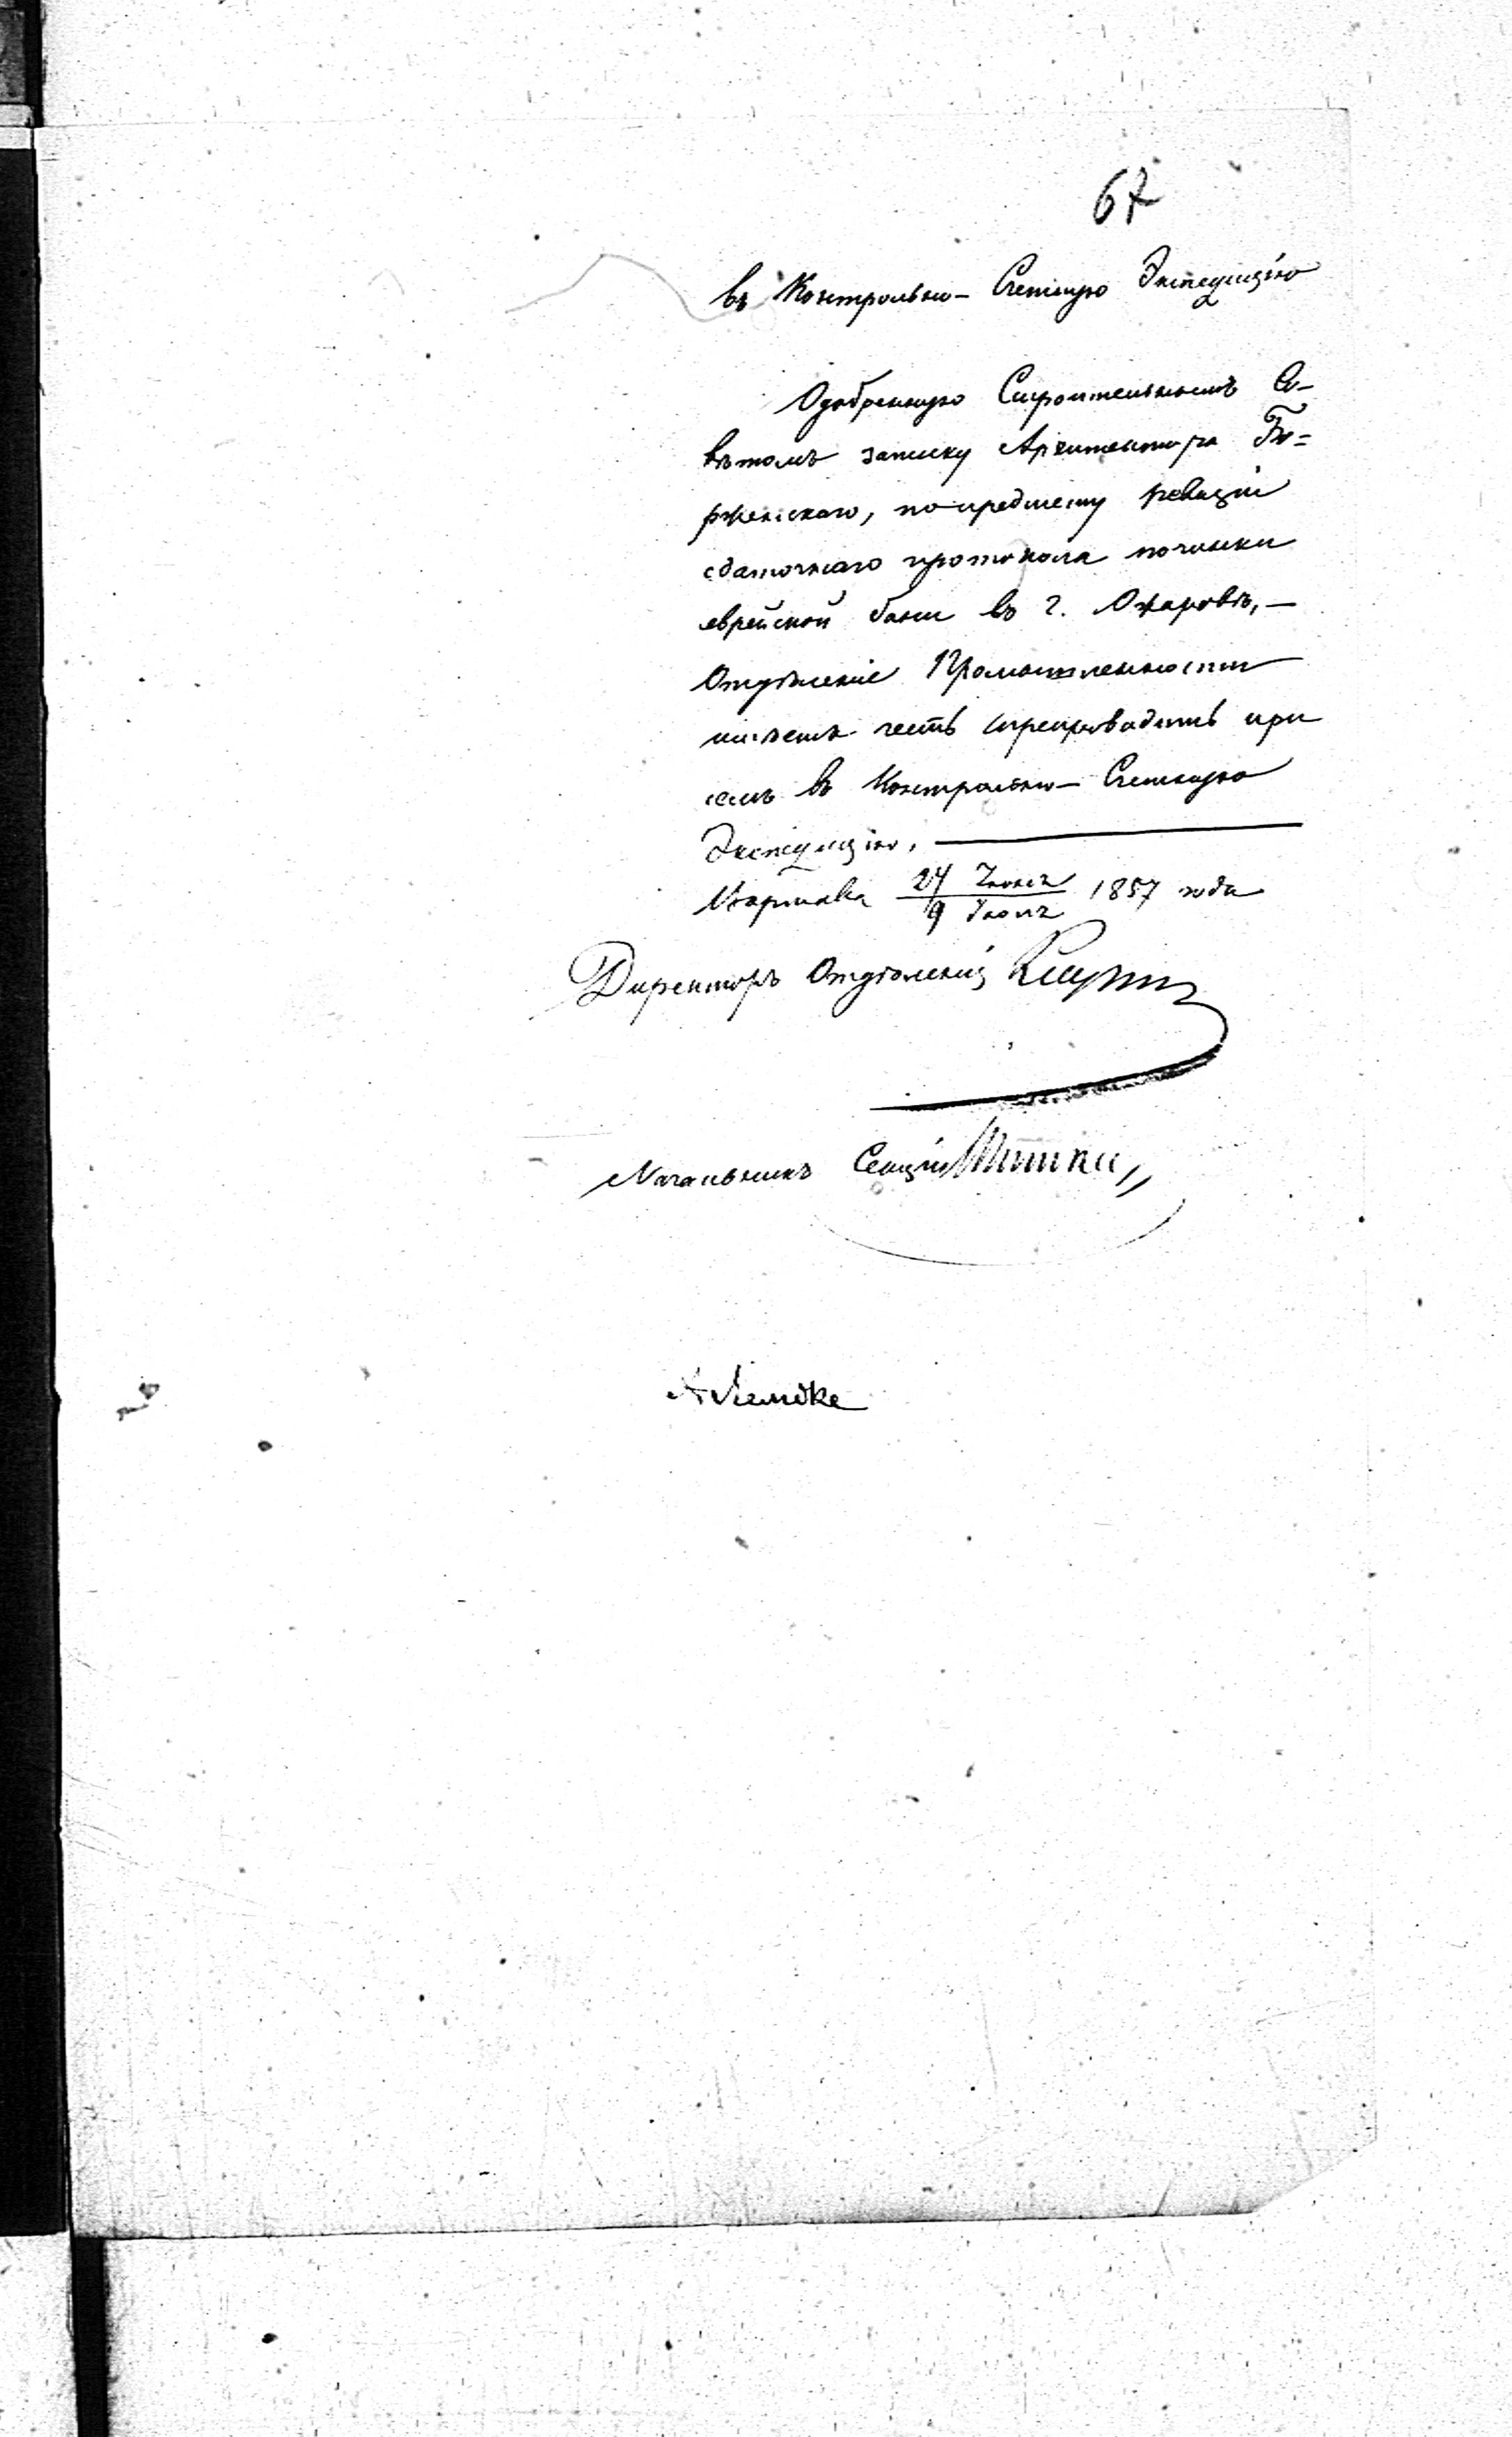 67
въ Контрольно-Счетную Экспедицію
Одобренную Строительнымъ Со-
вѣтомъ записку Архитектора
рженскаго, по предмету ревизіи
сдаточнаго протокола починки
еврейской бани въ г. Ожаровѣ, —
Отдѣленіе Промышленности
имѣетъ честь препроводить при
семъ въ Контрольно-Счетную
Экспедицію. —
Варшава 27 Іюня / 9 Іюля 1857 года
Директоръ Отдѣленія
Начальникъ Секціи